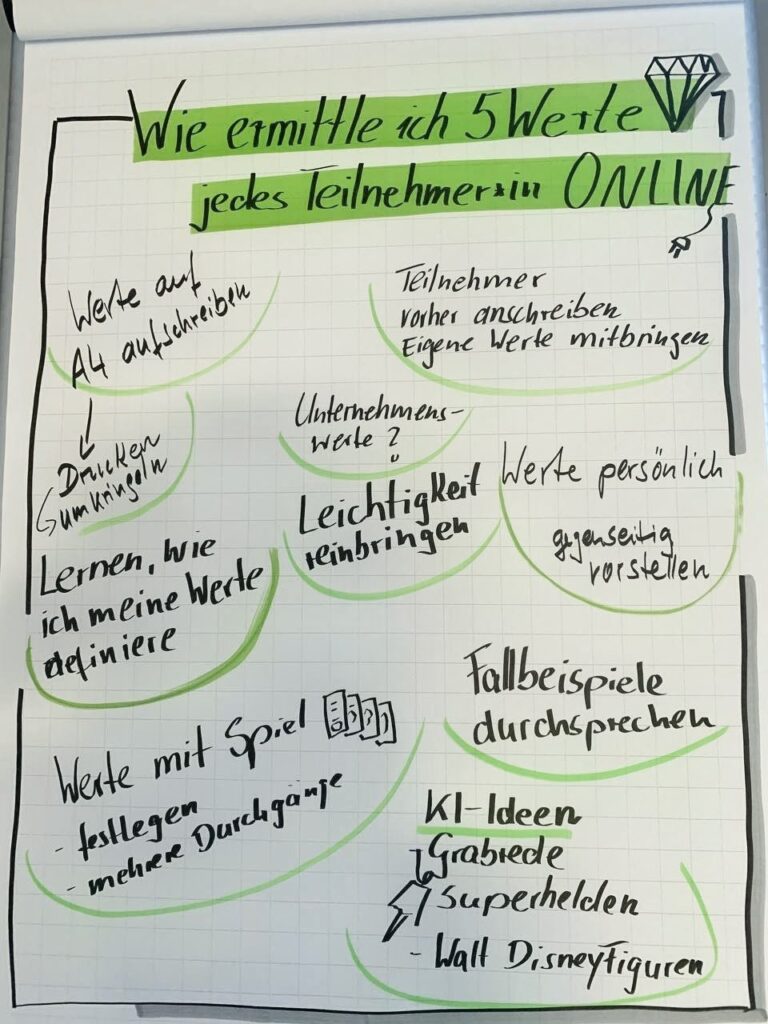 Wie ermittle ich 5 Werte
jedes Teilnehmer*in ONLINE
Werte auf
A4 aufschreiben
Drucken
umkringeln
Teilnehmer
vorher anschreiben
Eigene Werte mitbringen
Unternehmens-
werte?
Leichtigkeit
reinbringen
Werte persönlich
gegenseitig
vorstellen
Lernen, wie
ich meine Werte
definiere
Fallbeispiele
durchsprechen
Werte mit Spiel
- festlegen
- mehrere Durchgänge
KI-Ideen
Grabrede
Superhelden
- Walt Disneyfiguren